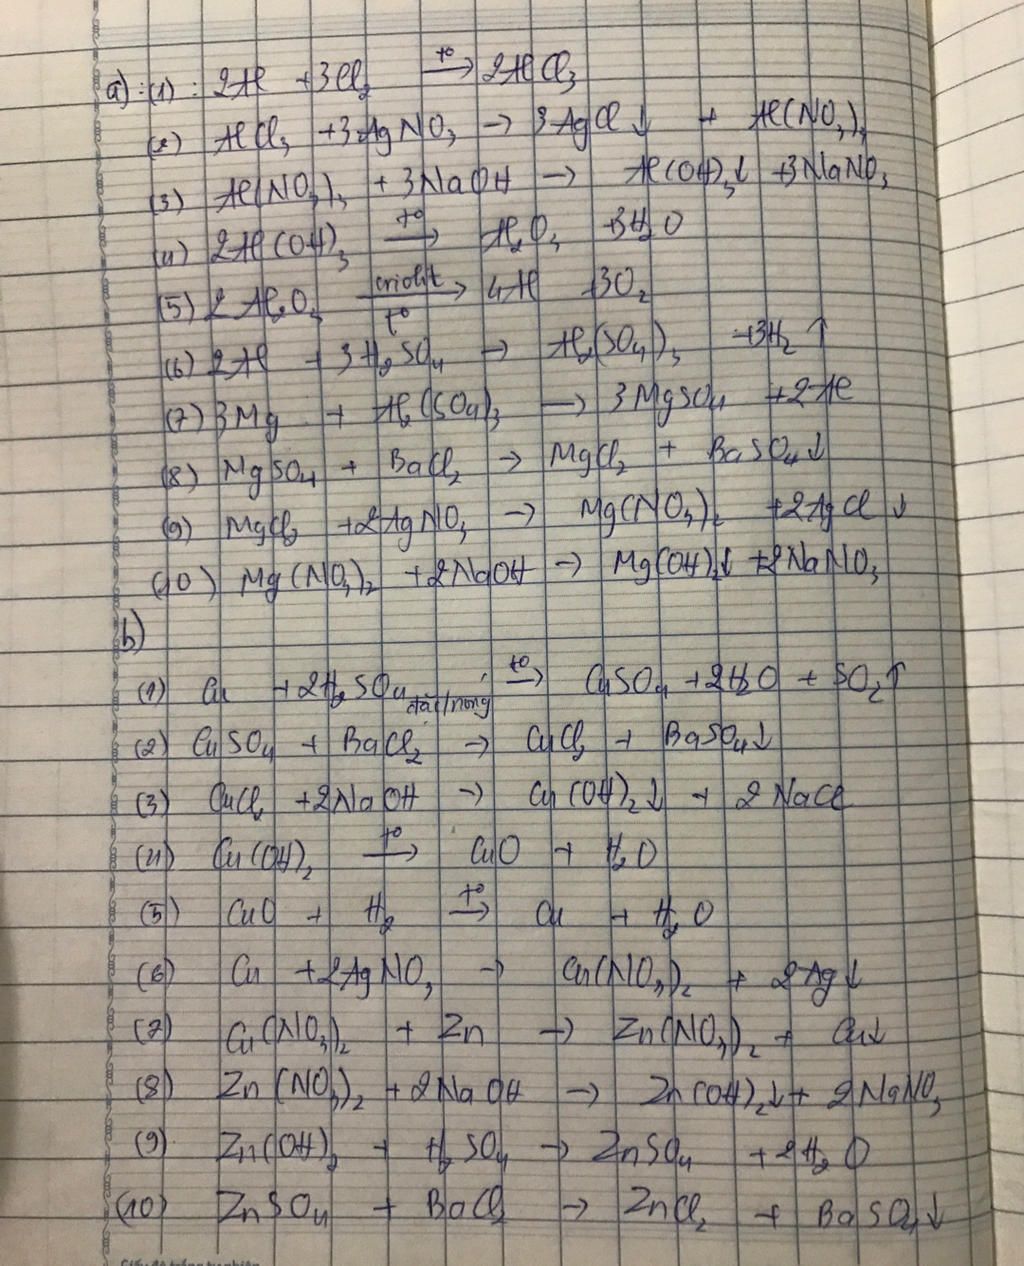 a): (1) : 2Al + 3Cl₂ —t°→ 2AlCl₃
(2) AlCl₃ + 3AgNO₃ → 3AgCl↓ + Al(NO₃)₃
(3) Al(NO₃)₃ + 3NaOH → Al(OH)₃↓ + 3NaNO₃
(4) 2Al(OH)₃ —t°→ Al₂O₃ + 3H₂O
(5) 2Al₂O₃ —criolit, t°→ 4Al + 3O₂
(6) 2Al + 3H₂SO₄ → Al₂(SO₄)₃ + 3H₂↑
(7) 3Mg + Al₂(SO₄)₃ → 3MgSO₄ + 2Al
(8) MgSO₄ + BaCl₂ → MgCl₂ + BaSO₄↓
(9) MgCl₂ + 2AgNO₃ → Mg(NO₃)₂ + 2AgCl↓
(10) Mg(NO₃)₂ + 2NaOH → Mg(OH)₂↓ + 2NaNO₃
b)
(1) Cu + 2H₂SO₄ đặc/nóng —t°→ CuSO₄ + 2H₂O + SO₂↑
(2) CuSO₄ + BaCl₂ → CuCl₂ + BaSO₄↓
(3) CuCl₂ + 2NaOH → Cu(OH)₂↓ + 2NaCl
(4) Cu(OH)₂ —t°→ CuO + H₂O
(5) CuO + H₂ —t°→ Cu + H₂O
(6) Cu + 2AgNO₃ → Cu(NO₃)₂ + 2Ag↓
(7) Cu(NO₃)₂ + Zn → Zn(NO₃)₂ + Cu↓
(8) Zn(NO₃)₂ + 2NaOH → Zn(OH)₂↓ + 2NaNO₃
(9) Zn(OH)₂ + H₂SO₄ → ZnSO₄ + 2H₂O
(10) ZnSO₄ + BaCl₂ → ZnCl₂ + BaSO₄↓